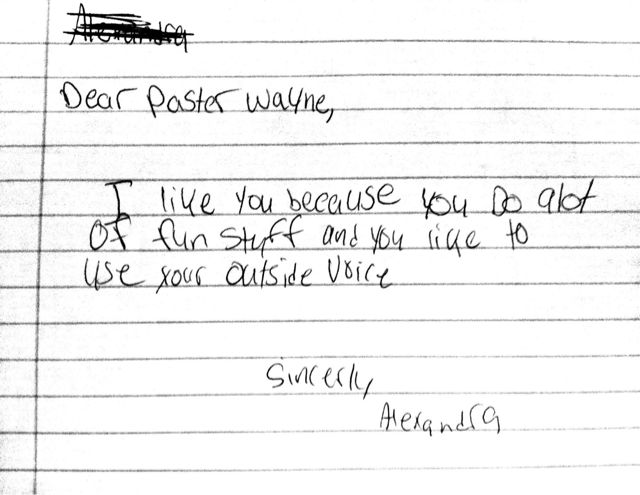 Alexandra
Dear Paster Wayne,
I like you because you Do alot
Of fun stuff and you like to
use your outside voice
Sincerly,
Alexandra